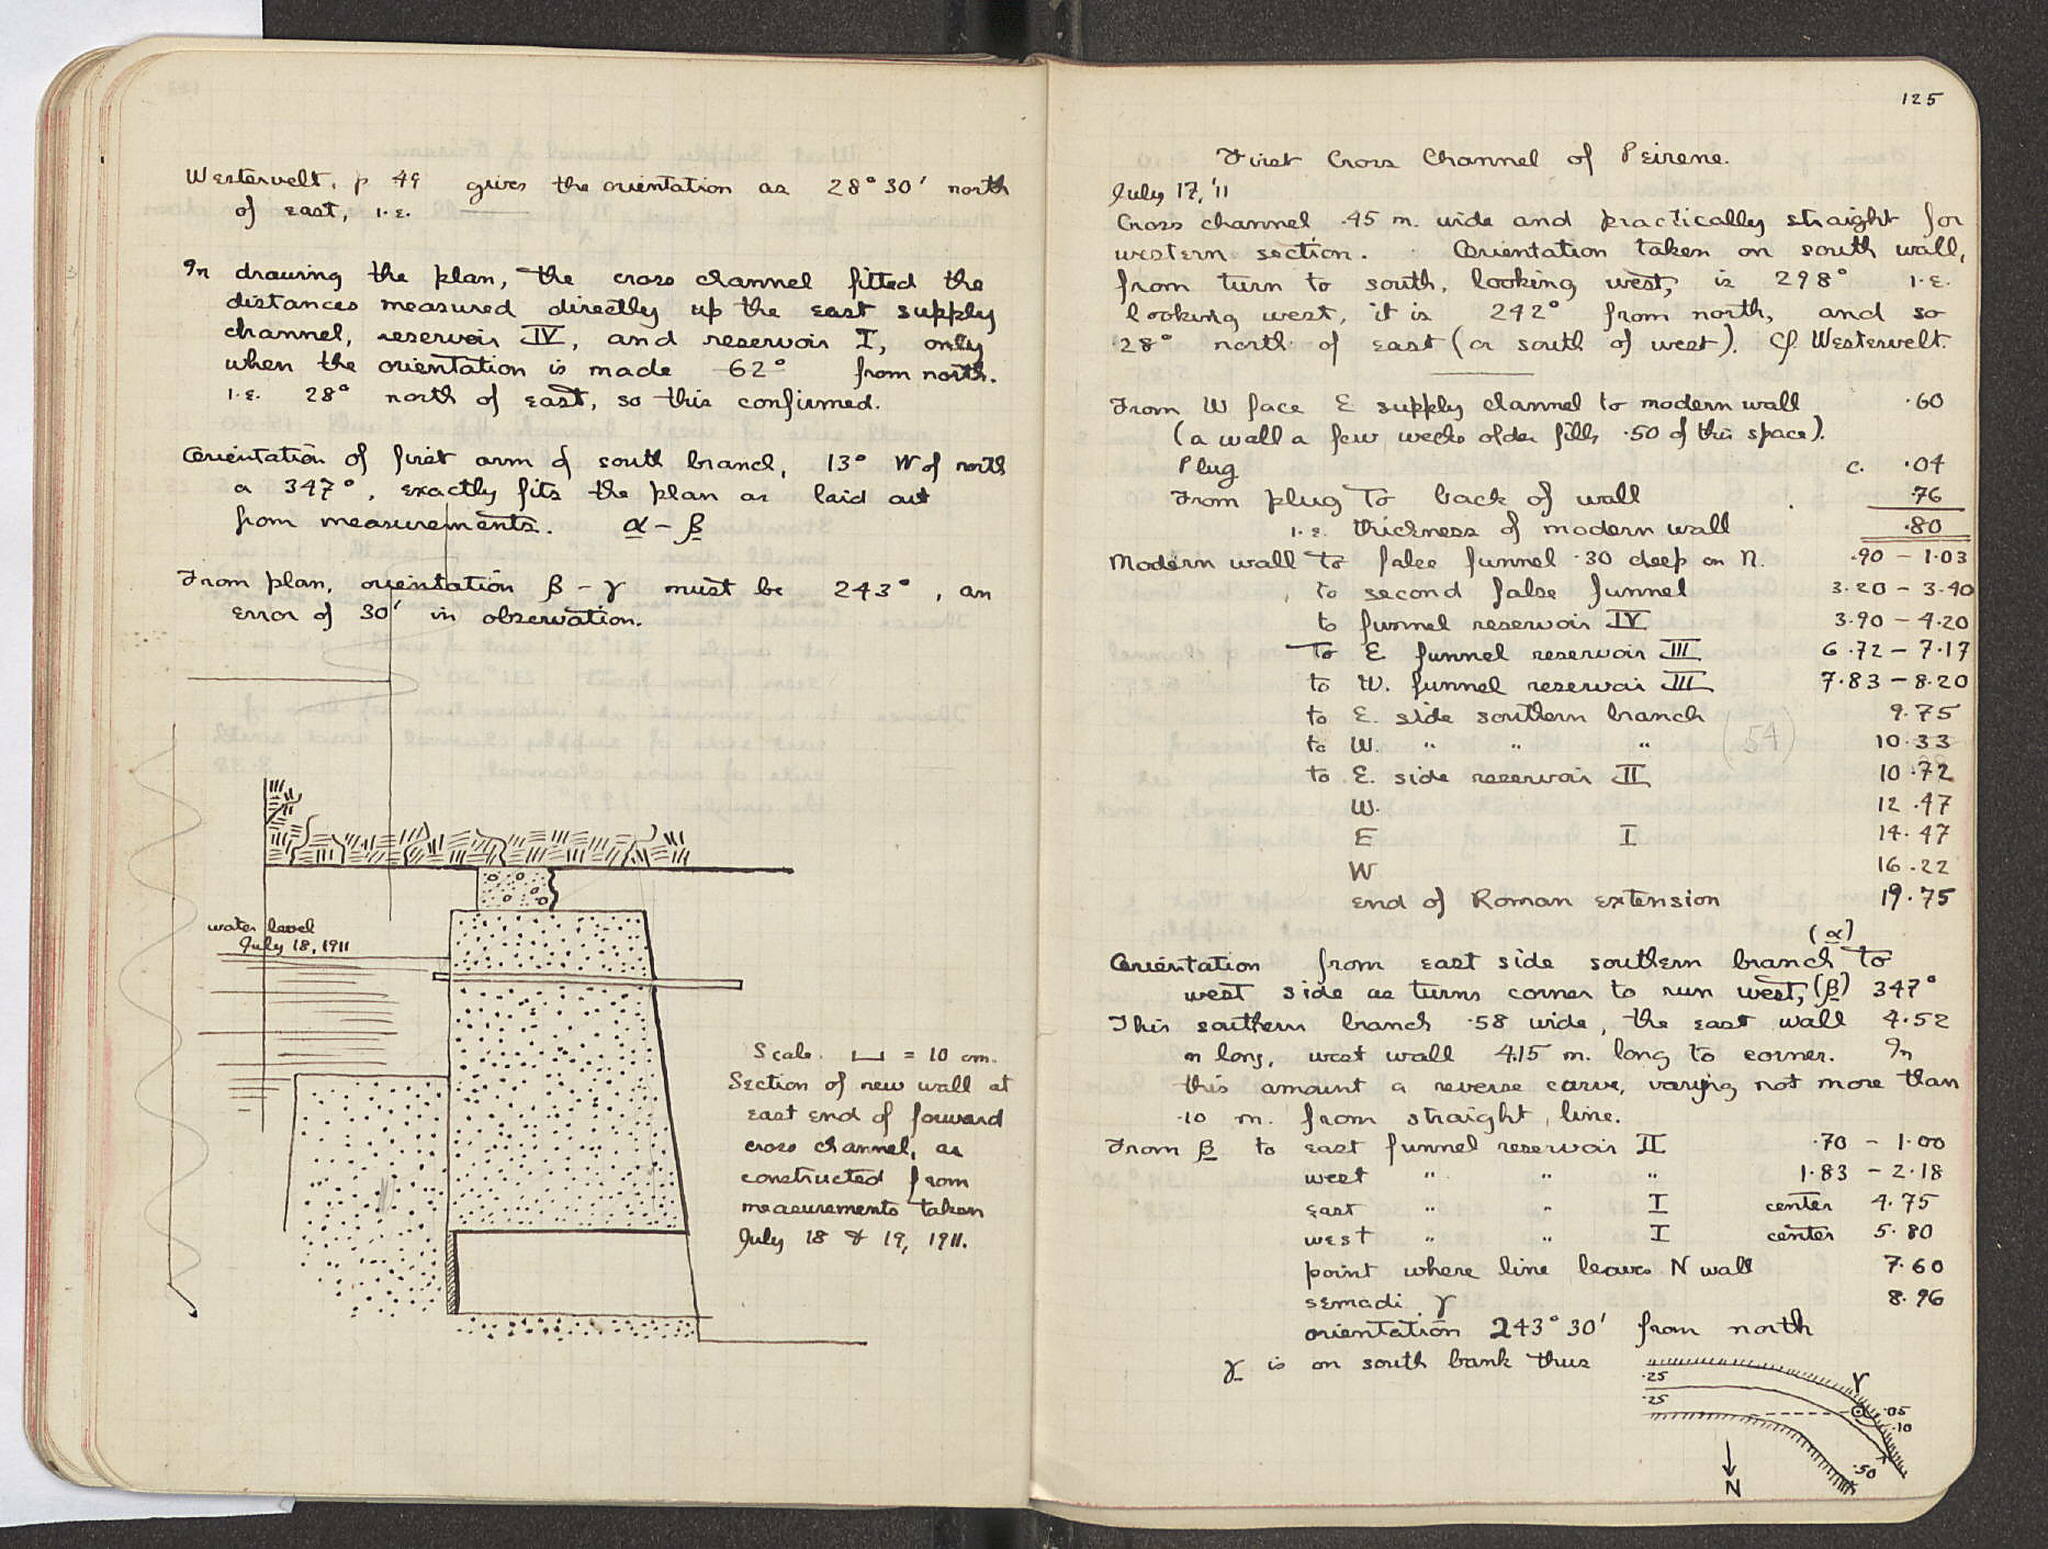 Westervelt, p 49 gives the orientation as 28° 30' north
of east, i.e.
In drawing the plan, the cross channel fitted the
distances measured directly up the east supply
channel, reservoir IV, and reservoir I, only
when the orientation is made 62° from north.
i.e. 28° north of east, so this confirmed.
Orientation of first arm of south branch, 13° W of north
or 347°, exactly fits the plan as laid out
from measurements. α – β
From plan, orientation β – γ must be 243°, an
error of 30' in observation.
water level
July 18, 1911
Scale. = 10 cm.
Section of new wall at
east end of forward
cross channel, as
constructed from
measurements taken
July 18 & 19, 1911.
125
First Cross Channel of Peirene.
July 17, '11
Cross channel .45 m. wide and practically straight for
western section. Orientation taken on south wall,
from turn to south, looking west, is 298° i.e.
looking west, it is 242° from north, and so
28° north of east (or south of west). Cf. Westervelt.
From W face E supply channel to modern wall .60
(a wall a few weeks older fills .50 of this space).
Plug c. .04
From plug to back of wall .76
i.e. thickness of modern wall .80
Modern wall to false funnel .30 deep on N. .90 – 1.03
to second false funnel 3.20 – 3.40
to funnel reservoir IV 3.90 – 4.20
To E funnel reservoir III 6.72 – 7.17
to W. funnel reservoir III 7.83 – 8.20
to E. side southern branch 9.75
to W. " " " (54) 10.33
to E. side reservoir II 10.72
W. 12.47
E I 14.47
W 16.22
end of Roman extension 19.75
(α)
Orientation from east side southern branch to
west side as turns corner to run west, (β) 347°
This southern branch .58 wide, the east wall 4.52
m long, west wall 4.15 m. long to corner. In
this amount a reverse curve, varying not more than
.10 m. from straight line.
From β to east funnel reservoir II .70 – 1.00
west " " " 1.83 – 2.18
east " " I center 4.75
west " " I center 5.80
point where line leaves N wall 7.60
semadi γ 8.96
orientation 243° 30' from north
γ is on south bank thus
.25
.25
γ
.05
.10
.50
N